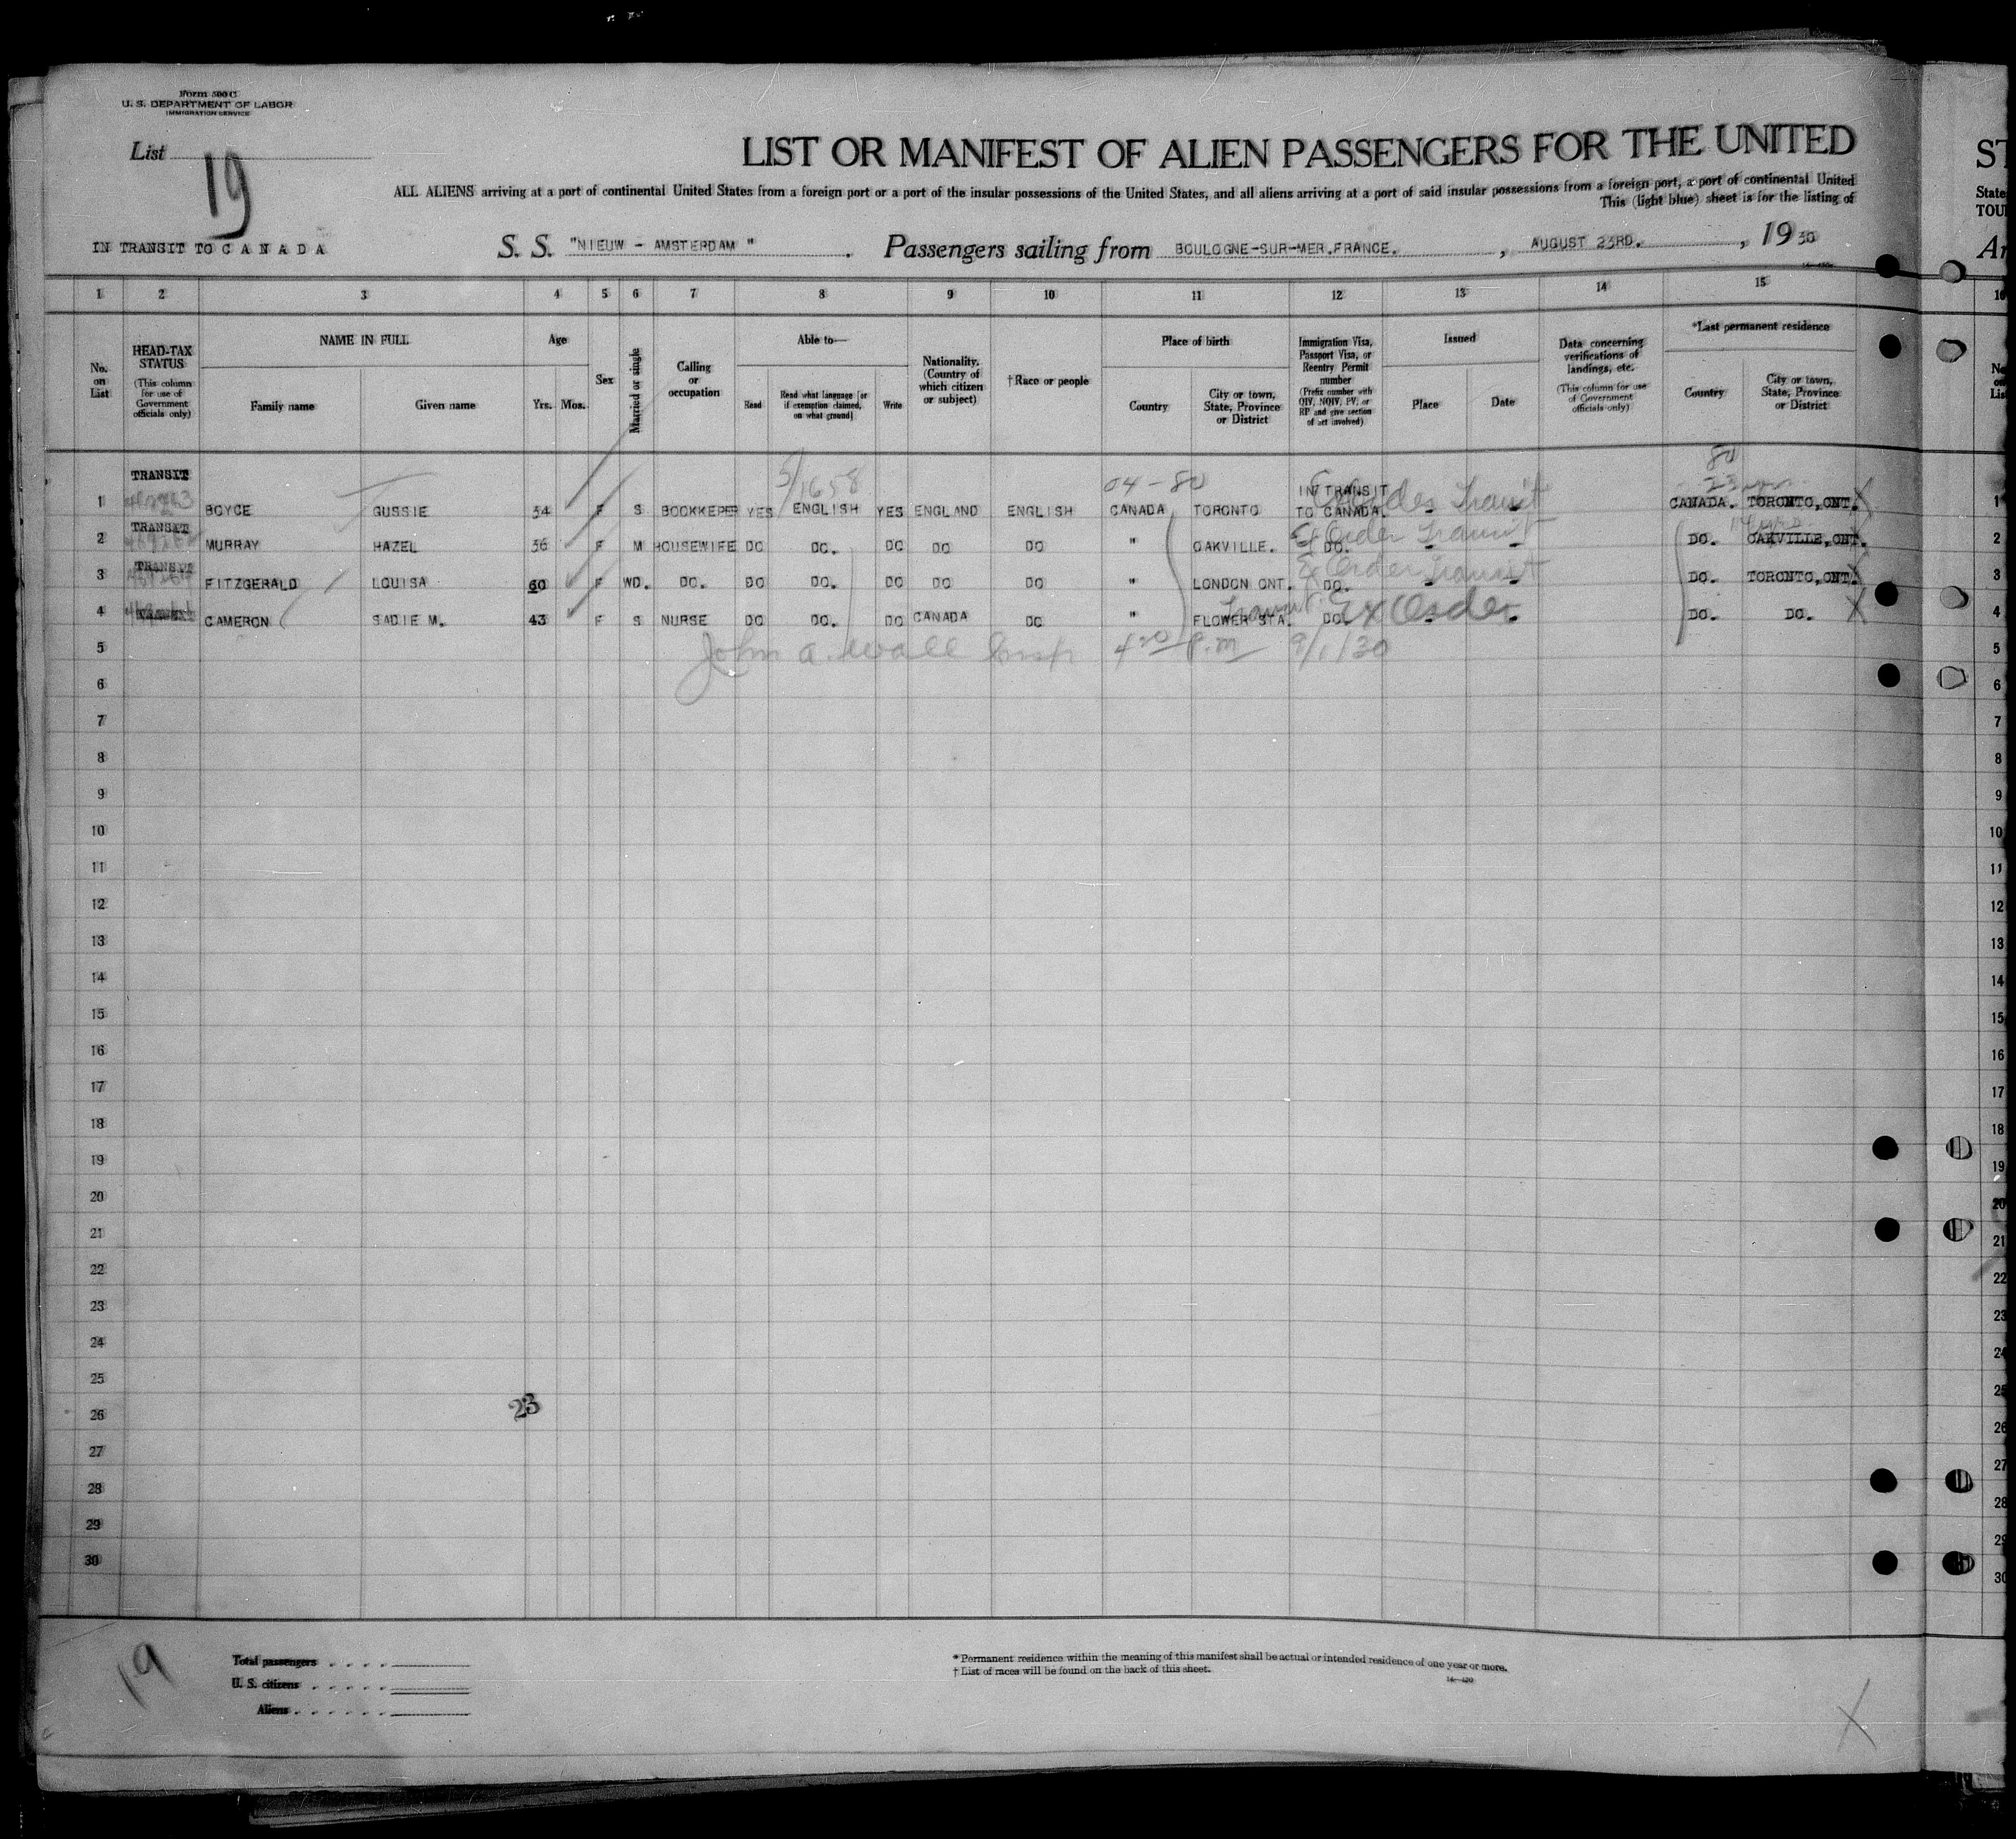 Form 500 C
U. S. DEPARTMENT OF LABOR
IMMIGRATION SERVICE
List 19
LIST OR MANIFEST OF ALIEN PASSENGERS FOR THE UNITED
ALL ALIENS arriving at a port of continental United States from a foreign port or a port of the insular possessions of the United States, and all aliens arriving at a port of said insular possessions from a foreign port, a port of continental United
This (light blue) sheet is for the listing of
IN TRANSIT TO C A N A D A S. S. "NIEUW - AMSTERDAM ". Passengers sailing from BOULOGNE-SUR-MER.FRANCE. , AUGUST 23RD. , 19 30
1 2 3 4 5 6 7 8 9 10 11 12 13 14 15
No. on List
HEAD-TAX STATUS (This column for use of Government officials only)
NAME IN FULL
Family name Given name
Age
Yrs. Mos.
Sex
Married or single
Calling or occupation
Able to—
Read Read what language [or if exemption claimed, on what ground] Write
Nationality. (Country of which citizen or subject)
†Race or people
Place of birth
Country City or town, State, Province or District
Immigration Visa, Passport Visa, or Reentry Permit number (Prefix number with QIV, NQIV, PV, or RP and give section of act involved)
Issued
Place Date
Data concerning verifications of landings, etc. (This column for use of Government officials only)
*Last permanent residence
Country City or town, State, Province or District
TRANSIT 5/1658 04-80 IN TRANSIT 80 23 yrs.
1 BOYCE GUSSIE 34 F S BOOKKEPER YES ENGLISH YES ENGLAND ENGLISH CANADA TORONTO TO CANADA. Transit CANADA. TORONTO,ONT. X 1
TRANSIT
2 MURRAY HAZEL 36 F M HOUSEWIFE DO DO. DO DO DO " OAKVILLE. DO. Ex Order Transit DO. OAKVILLE,ONT. 2
TRANSIT
3 FITZGERALD LOUISA 60 F WD. DO. DO DO. DO DO DO " LONDON ONT. DO. Ex Order Transit DO. TORONTO,ONT. X 3
TRANSIT
4 CAMERON SADIE M. 43 F S NURSE DO DO. DO CANADA DO " FLOWER STA. DO. Transit Ex Order DO. DO. X 4
5 John A. Wall Insp 4 20 P.m 9/1/30 5
6 6
7 7
8 8
9 9
10 10
11 11
12 12
13 13
14 14
15 15
16 16
17 17
18 18
19 19
20 20
21 21
22 22
23 23
24 24
25 25
26 23 26
27 27
28 28
29 29
30 30
19
Total passengers
U. S. citizens
Aliens
* Permanent residence within the meaning of this manifest shall be actual or intended residence of one year or more.
† List of races will be found on the back of this sheet.
X
ST
State
TOU